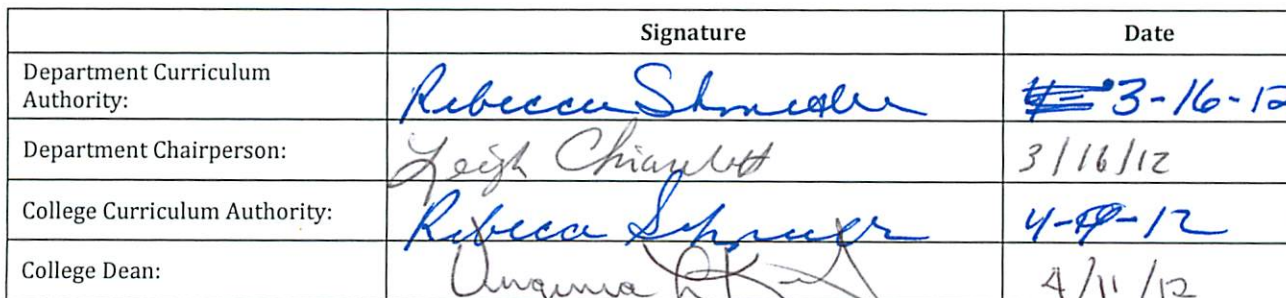 Signature Date
Department Curriculum
Authority: Rebecca 3-16-12
Department Chairperson: Leigh 3/16/12
College Curriculum Authority: Rebecca
College Dean: Virginia 4/11/12